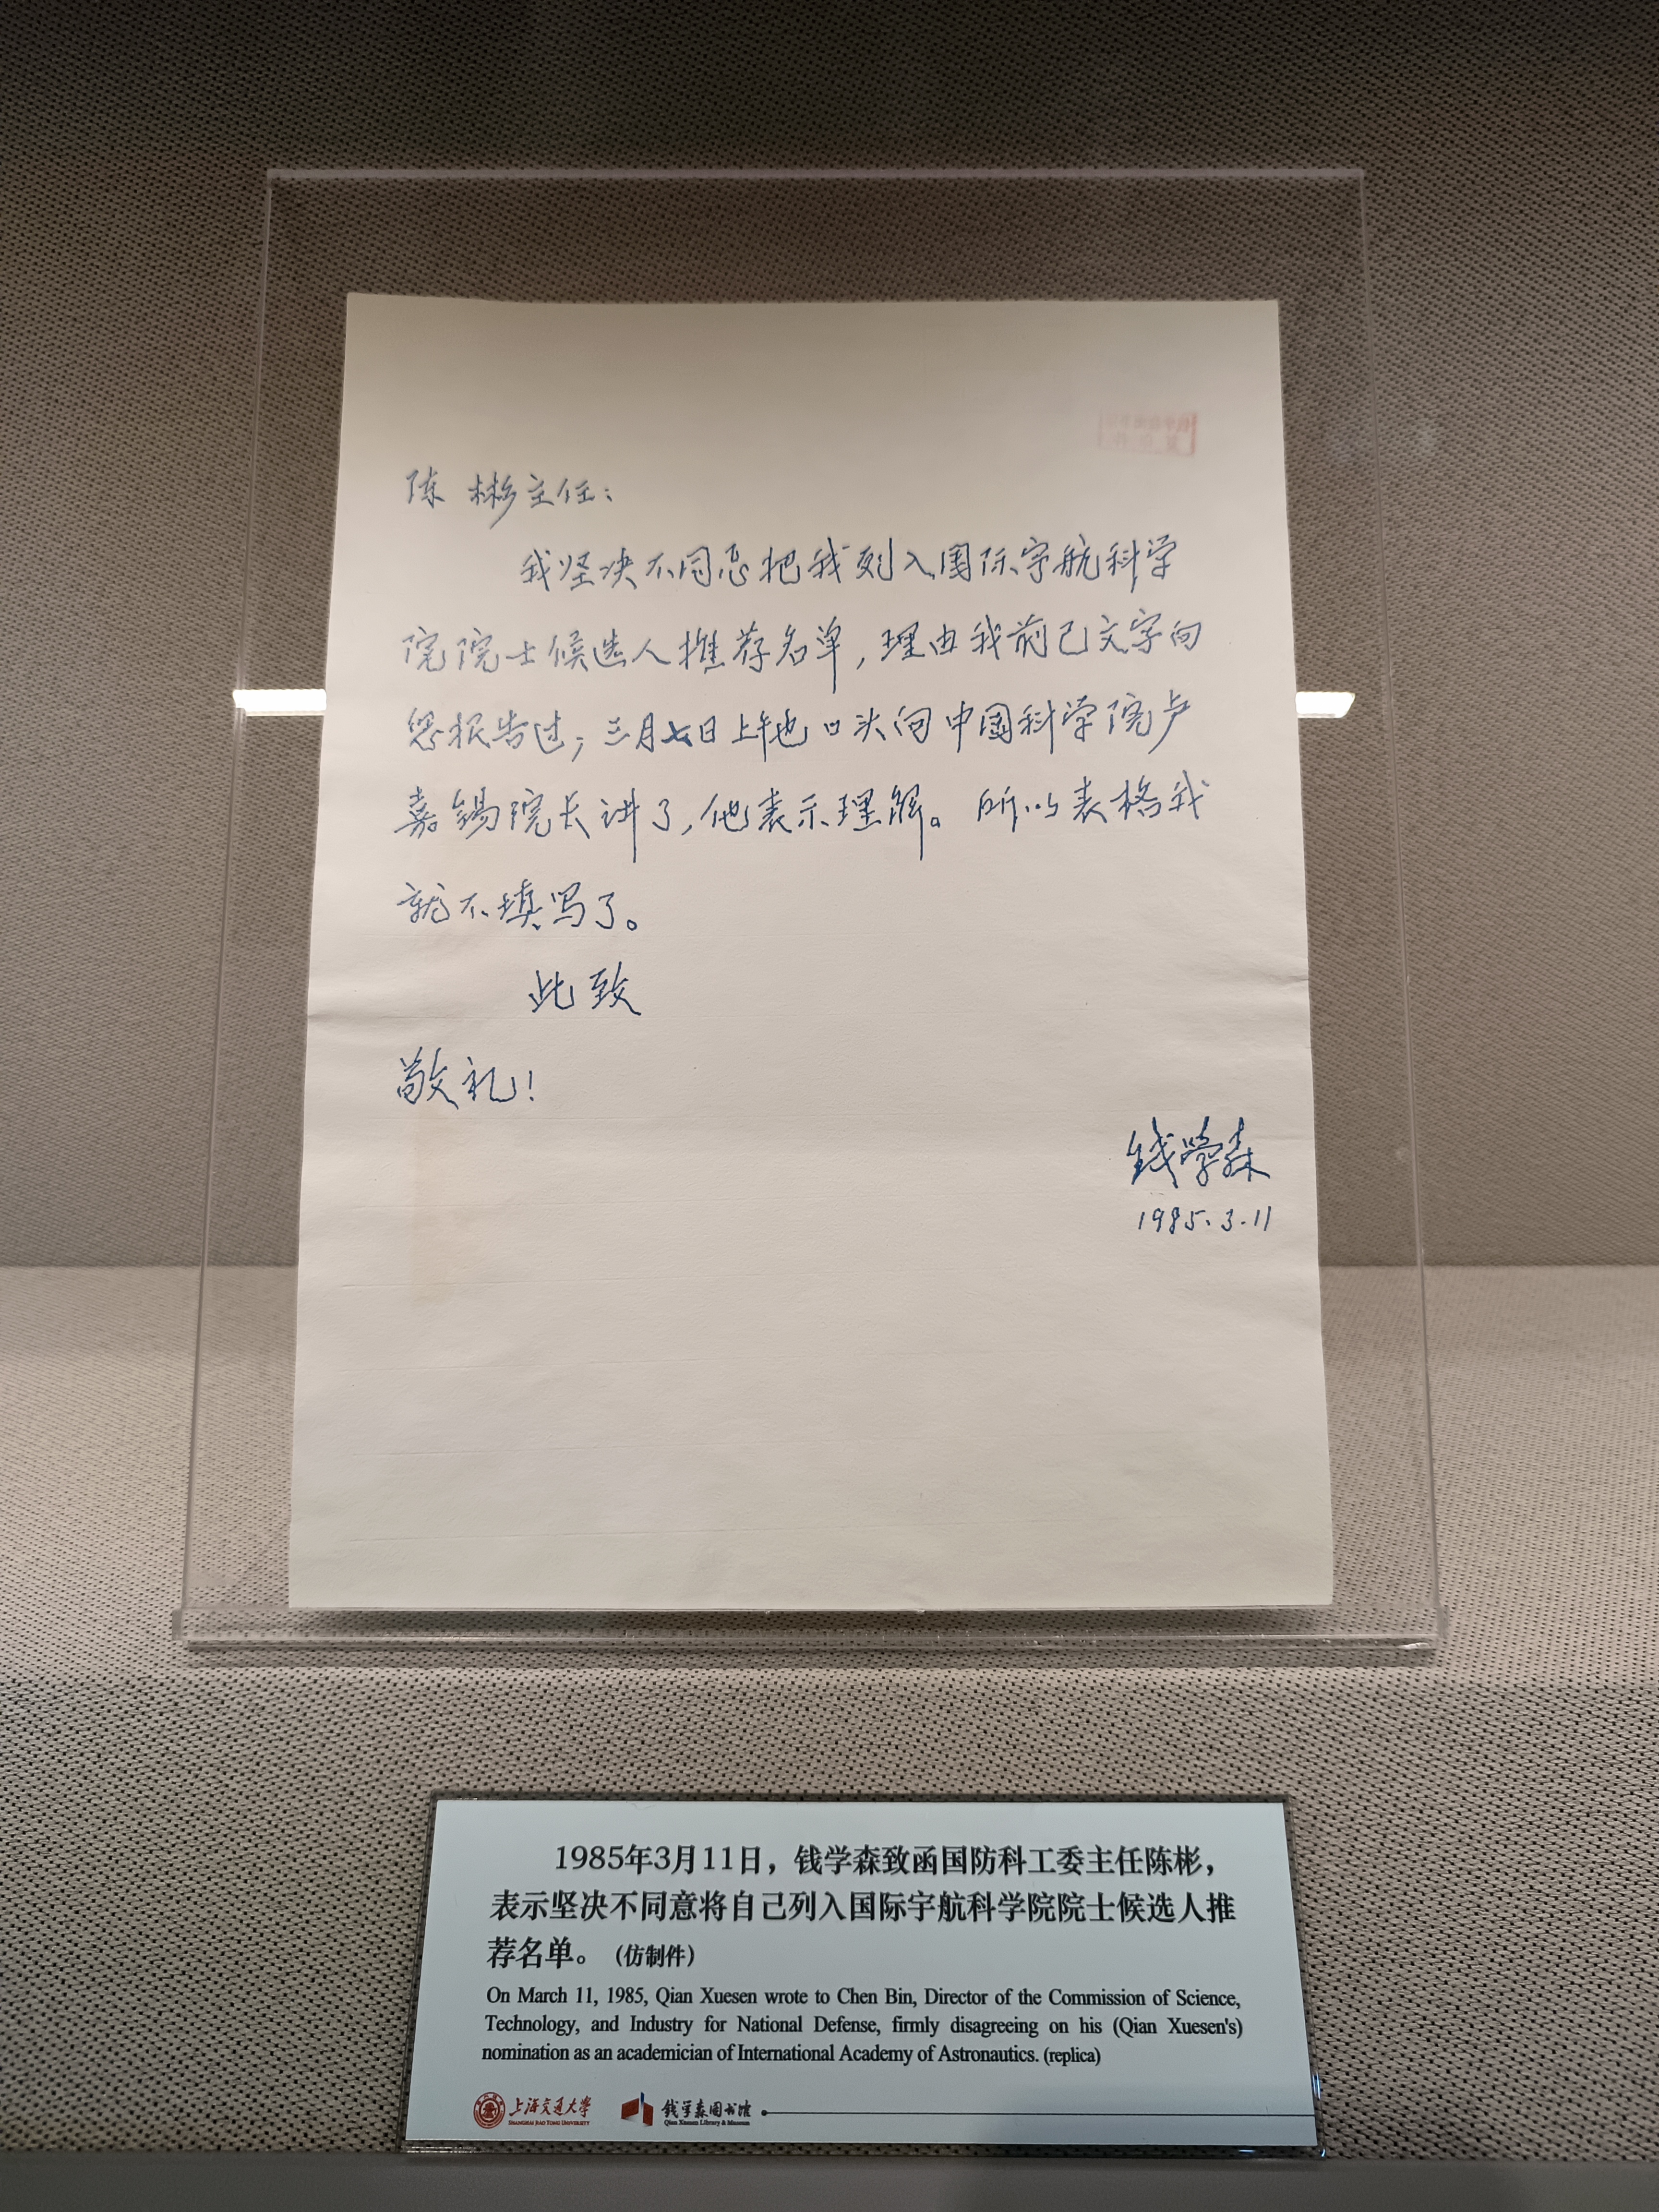 陈彬主任：
我坚决不同意把我列入国际宇航科学
院院士候选人推荐名单，理由我前已文字向
您报告过；三月七日上午也口头向中国科学院卢
嘉锡院长讲了，他表示理解。所以表格我
就不填写了。
此致
敬礼！
钱学森
1985.3.11
1985年3月11日，钱学森致函国防科工委主任陈彬，
表示坚决不同意将自己列入国际宇航科学院院士候选人推
荐名单。（仿制件）
On March 11, 1985, Qian Xuesen wrote to Chen Bin, Director of the Commission of Science,
Technology, and Industry for National Defense, firmly disagreeing on his (Qian Xuesen's)
nomination as an academician of International Academy of Astronautics. (replica)
上海交通大学 钱学森图书馆
SHANGHAI JIAO TONG UNIVERSITY Qian Xuesen Library & Museum